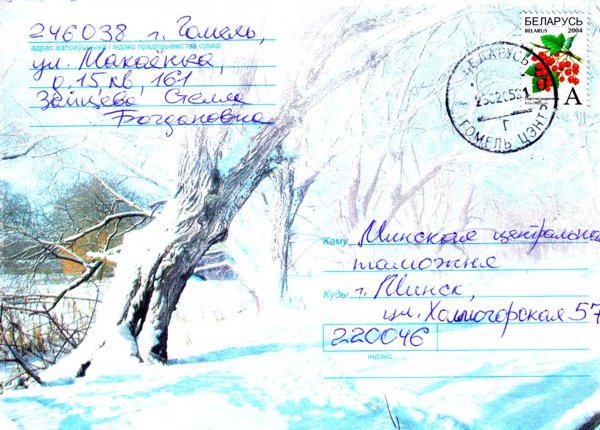 246038 г. Гомель,
адрас адпраўшчыка і індэкс прадпрыемства сувязі
ул. Макаёнка,
д. 15, кв. 161
Зайцева Стелла
Богдановна
БЕЛАРУСЬ
BELARUS 2004
A
БЕЛАРУСЬ
ГОМЕЛЬ ЦЭНТР
Г
Каму Минская центральная
таможня
Куды г. Минск,
ул. Холмогорская 57
220046
індэкс